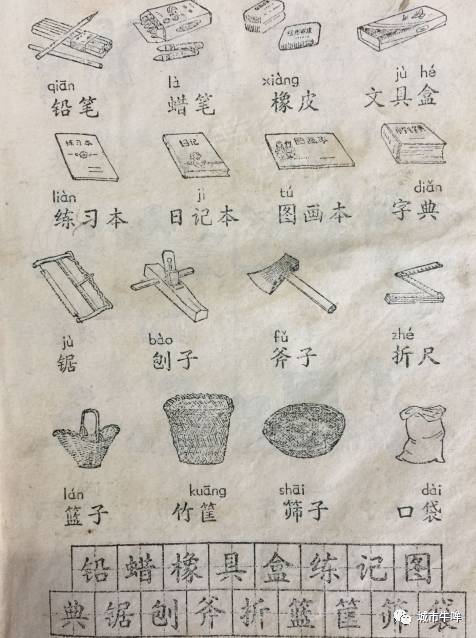 qiān là xiàng jù hé
铅笔 蜡笔 橡皮 文具盒
练习本 日记 图画本
liàn jì tú diǎn
练习本 日记本 图画本 字典
jù bào fǔ zhé
锯 刨子 斧子 折尺
lán kuāng shāi dài
篮子 竹筐 筛子 口袋
铅蜡橡具盒练记图
典锯刨斧折篮筐筛袋
城市牛哞